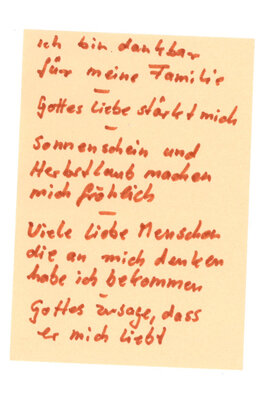 ich bin dankbar
für meine Familie
–
Gottes Liebe stärkt mich
–
Sonnenschein und
Herbstlaub machen
mich fröhlich
–
Viele liebe Menschen
die an mich denken
habe ich bekommen
–
Gottes Zusage, dass
er mich liebt